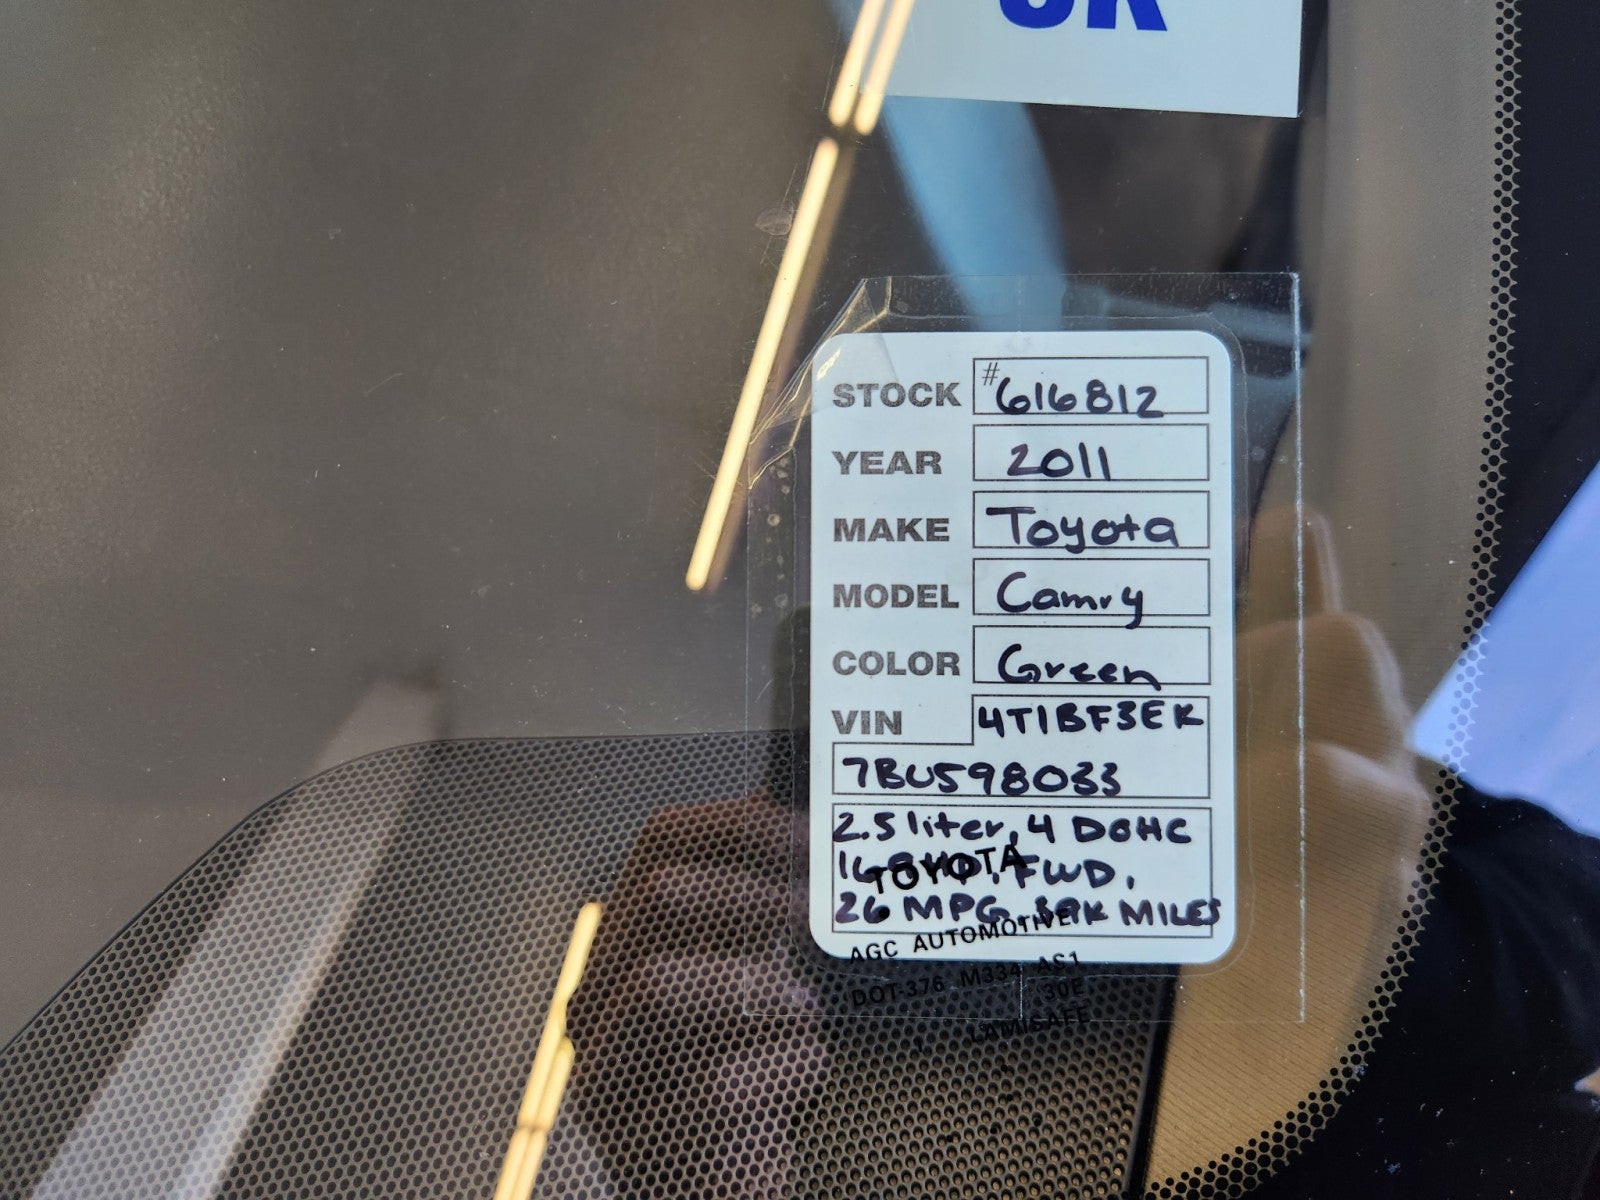 STOCK # 616812
YEAR 2011
MAKE Toyota
MODEL Camry
COLOR Green
VIN 4T1BF3EK
7BU598033
2.5 liter, 4 DOHC
FWD,
26 MPG, MILES
TOYOTA
AGC AUTOMOTIVE
DOT-376 M334 AS1
30E
LAMISAFE